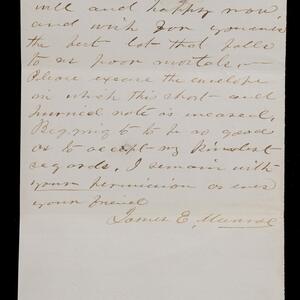 well and happy now,
and wish for yourself
the best lot that falls
to us poor mortals.—
Please excuse the envelope
in which this short and
hurried note is incased.
Begging to be so good
as to accept my kindest
regards, I remain with
your permission as ever
your friend
James E. Munroe